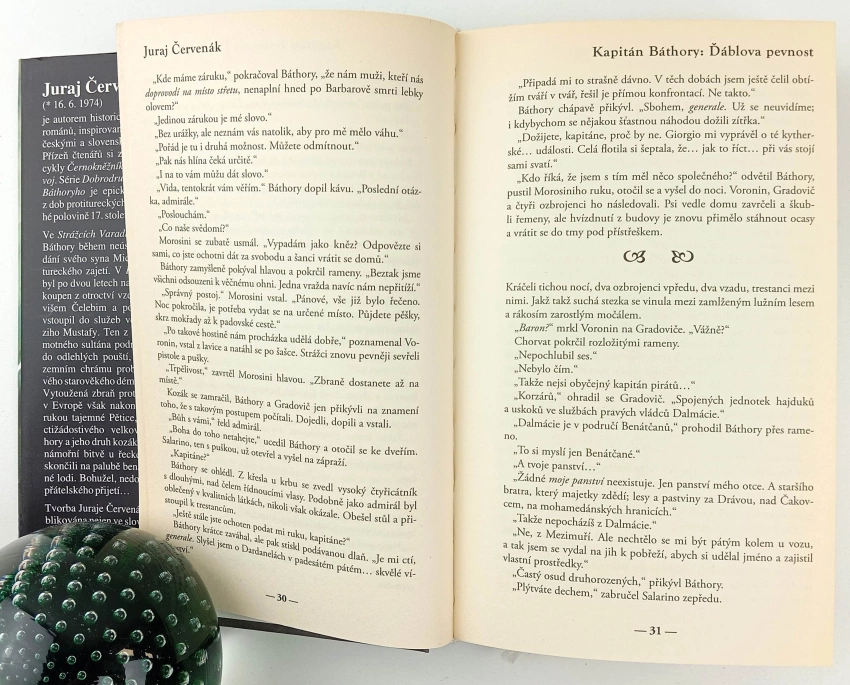 Juraj Červ
(* 16. 6. 1974)
je autorem historic
románů, inspirovan
českými a slovensk
Přízeň čtenářů si z
cykly Černokněžník
voj. Série Dobrodru
Báthoryho je epick
z dob protitureckých
hé polovině 17. stole
Ve Strážcích Varad
Báthory během neús
dání svého syna Mic
tureckého zajetí. V
byl po dvou letech na
koupen z otroctví vzd
višem Čelebim a po
vstoupil do služeb v
ziho Mustafy. Ten z
motného sultána podn
do odlehlých pouští,
zemním chrámu prob
vého starověkého dém
Vytoužená zbraň prot
v Evropě však nakon
rukou tajemné Pětice,
ctižádostivého velkov
hory a jeho druh kozák
námořní bitvě u řeck
skončili na palubě ben
né lodi. Bohužel, nedo
přátelského přijetí…
Tvorba Juraje Červená
blikována nejen ve slov
Juraj Červenák
„Kde máme záruku,“ pokračoval Báthory, „že nám muži, kteří nás
doprovodí na místo střetu, nenaplní hned po Barbarově smrti lebky
olovem?“
„Jedinou zárukou je mé slovo.“
„Bez urážky, ale neznám vás natolik, aby pro mě mělo váhu.“
„Pořád je tu i druhá možnost. Můžete odmítnout.“
„Pak nás hlína čeká určitě.“
„I na to vám můžu dát slovo.“
„Vida, tentokrát vám věřím.“ Báthory dopil kávu. „Poslední otáz-
ka, admirále.“
„Poslouchám.“
„Co naše svědomí?“
Morosini se zubatě usmál. „Vypadám jako kněz? Odpovězte si
sami, co jste ochotni dát za svobodu a šanci vrátit se domů.“
Báthory zamyšleně pokýval hlavou a pokrčil rameny. „Beztak jsme
všichni odsouzeni k věčnému ohni. Jedna vražda navíc nám nepřitíží.“
„Správný postoj.“ Morosini vstal. „Pánové, vše již bylo řečeno.
Noc pokročila, je potřeba vydat se na určené místo. Půjdete pěšky,
skrz mokřady až k padovské cestě.“
„Po takové hostině nám procházka udělá dobře,“ poznamenal Vo-
ronin, vstal z lavice a natáhl se po šašce. Strážci znovu pevněji sevřeli
pistole a pušky.
„Trpělivost,“ zavrtěl Morosini hlavou. „Zbraně dostanete až na
místě.“
Kozák se zamračil, Báthory a Gradovič jen přikývli na znamení
toho, že s takovým postupem počítali. Dojedli, dopili a vstali.
„Bůh s vámi,“ řekl admirál.
„Boha do toho netahejte,“ ucedil Báthory a otočil se ke dveřím.
Salarino, ten s puškou, už otevřel a vyšel na zápraží.
„Kapitáne?“
Báthory se ohlédl. Z křesla u krbu se zvedl vysoký čtyřicátník
s dlouhými, nad čelem řídnoucími vlasy. Podobně jako admirál byl
oblečený v kvalitních látkách, nikoli však okázale. Obešel stůl a při-
stoupil k trestancům.
„Ještě stále jste ochoten podat mi ruku, kapitáne?“
Báthory krátce zaváhal, ale pak stiskl podávanou dlaň. „Je mi ctí,
generale. Slyšel jsem o Dardanelách v padesátém pátém… skvělé ví-
— 30 —
Kapitán Báthory: Ďáblova pevnost
„Připadá mi to strašně dávno. V těch dobách jsem ještě čelil obtí-
žím tváří v tvář, řešil je přímou konfrontací. Ne takto.“
Báthory chápavě přikývl. „Sbohem, generale. Už se neuvidíme;
i kdybychom se nějakou šťastnou náhodou dožili zítřka.“
„Dožijete, kapitáne, proč by ne. Giorgio mi vyprávěl o té kyther-
ské… události. Celá flotila si šeptala, že… jak to říct… při vás stojí
sami svatí.“
„Kdo říká, že jsem s tím měl něco společného?“ odvětil Báthory,
pustil Morosiniho ruku, otočil se a vyšel do noci. Voronin, Gradovič
a čtyři ozbrojenci ho následovali. Psi vedle domu zavrčeli a škub-
li řemeny, ale hvízdnutí z budovy je znovu přimělo stáhnout ocasy
a vrátit se do tmy pod přístřeškem.
Kráčeli tichou nocí, dva ozbrojenci vpředu, dva vzadu, trestanci mezi
nimi. Jakž takž suchá stezka se vinula mezi zamlženým lužním lesem
a rákosím zarostlým močálem.
„Baron?“ mrkl Voronin na Gradoviče. „Vážně?“
Chorvat pokrčil rozložitými rameny.
„Nepochlubil ses.“
„Nebylo čím.“
„Takže nejsi obyčejný kapitán pirátů…“
„Korzárů,“ ohradil se Gradovič. „Spojených jednotek hajduků
a uskoků ve službách pravých vládců Dalmácie.“
„Dalmácie je v područí Benátčanů,“ prohodil Báthory přes rame-
no.
„To si myslí jen Benátčané.“
„A tvoje panství…“
„Žádné moje panství neexistuje. Jen panství mého otce. A staršího
bratra, který majetky zdědí; lesy a pastviny za Drávou, nad Čakov-
cem, na mohamedánských hranicích.“
„Takže nepocházíš z Dalmácie.“
„Ne, z Mezimuří. Ale nechtělo se mi být pátým kolem u vozu,
a tak jsem se vydal na jih k pobřeží, abych si udělal jméno a zajistil
vlastní prostředky.“
„Častý osud druhorozených,“ přikývl Báthory.
„Plýtváte dechem,“ zabručel Salarino zepředu.
— 31 —